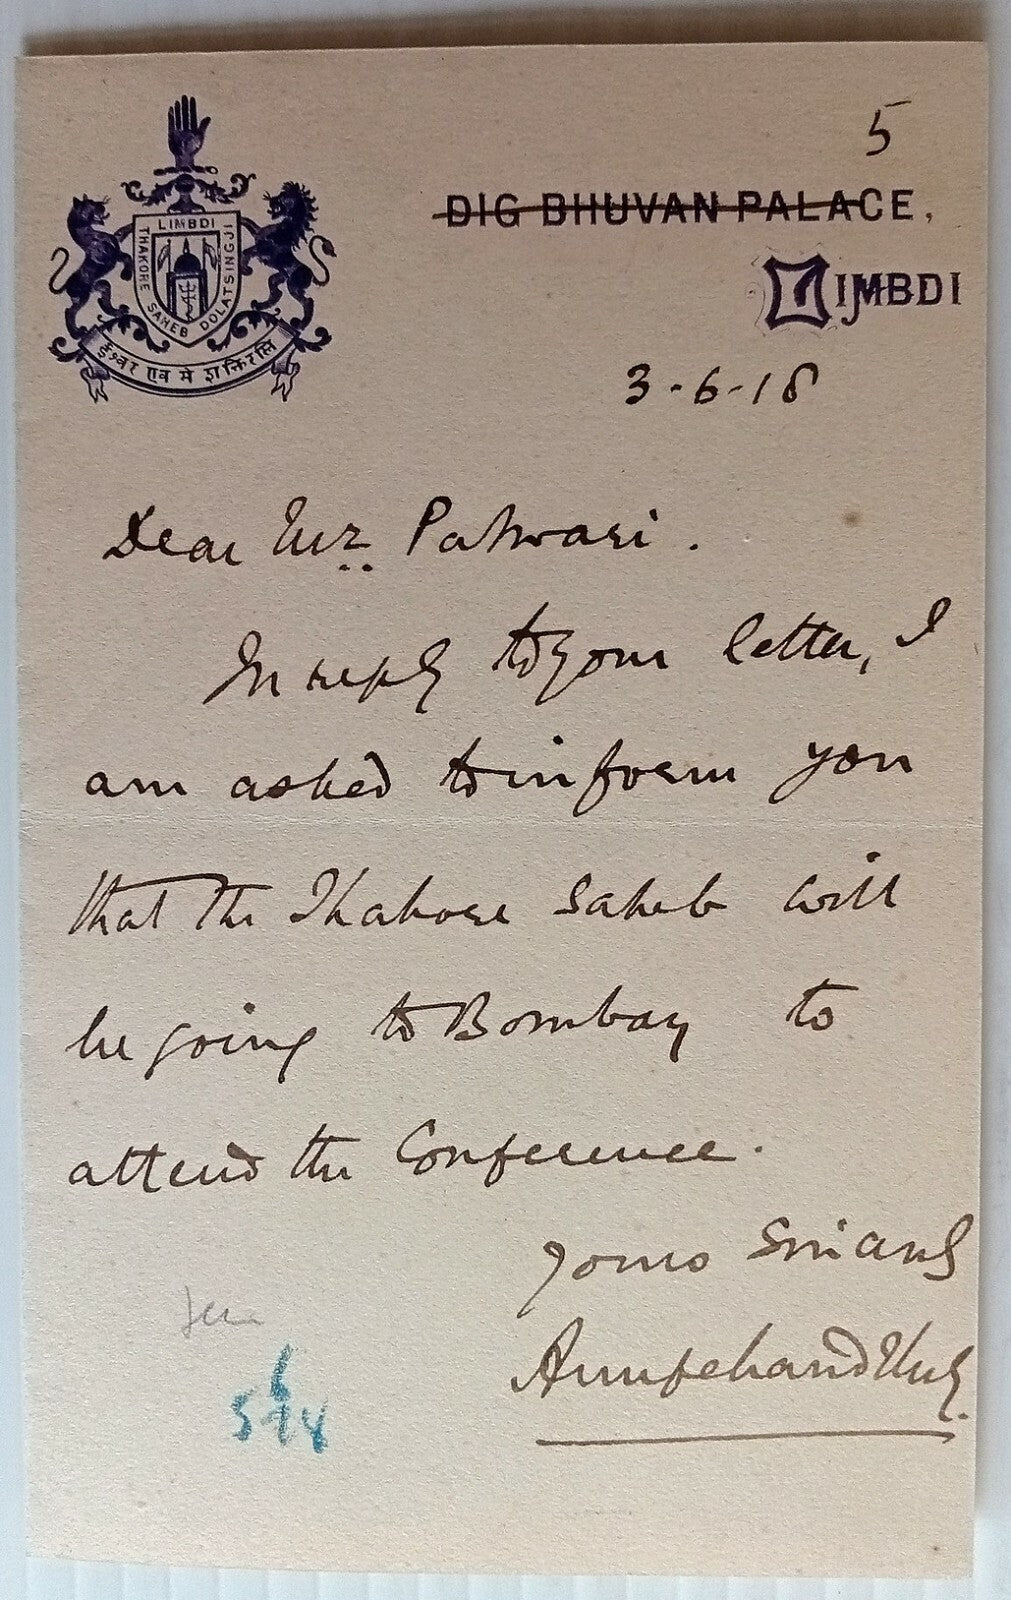 5
LIMBDI
THAKORE SAHEB DOLATSINGJI
ईश्वर एव मे शक्तिरस्ति
DIG BHUVAN PALACE,
LIMBDI
3-6-18
Dear Mr. Patwari.
In reply to your letter, I
am asked to inform you
that the Thakore Saheb will
be going to Bombay to
attend the Conference.
Yours Sincerely